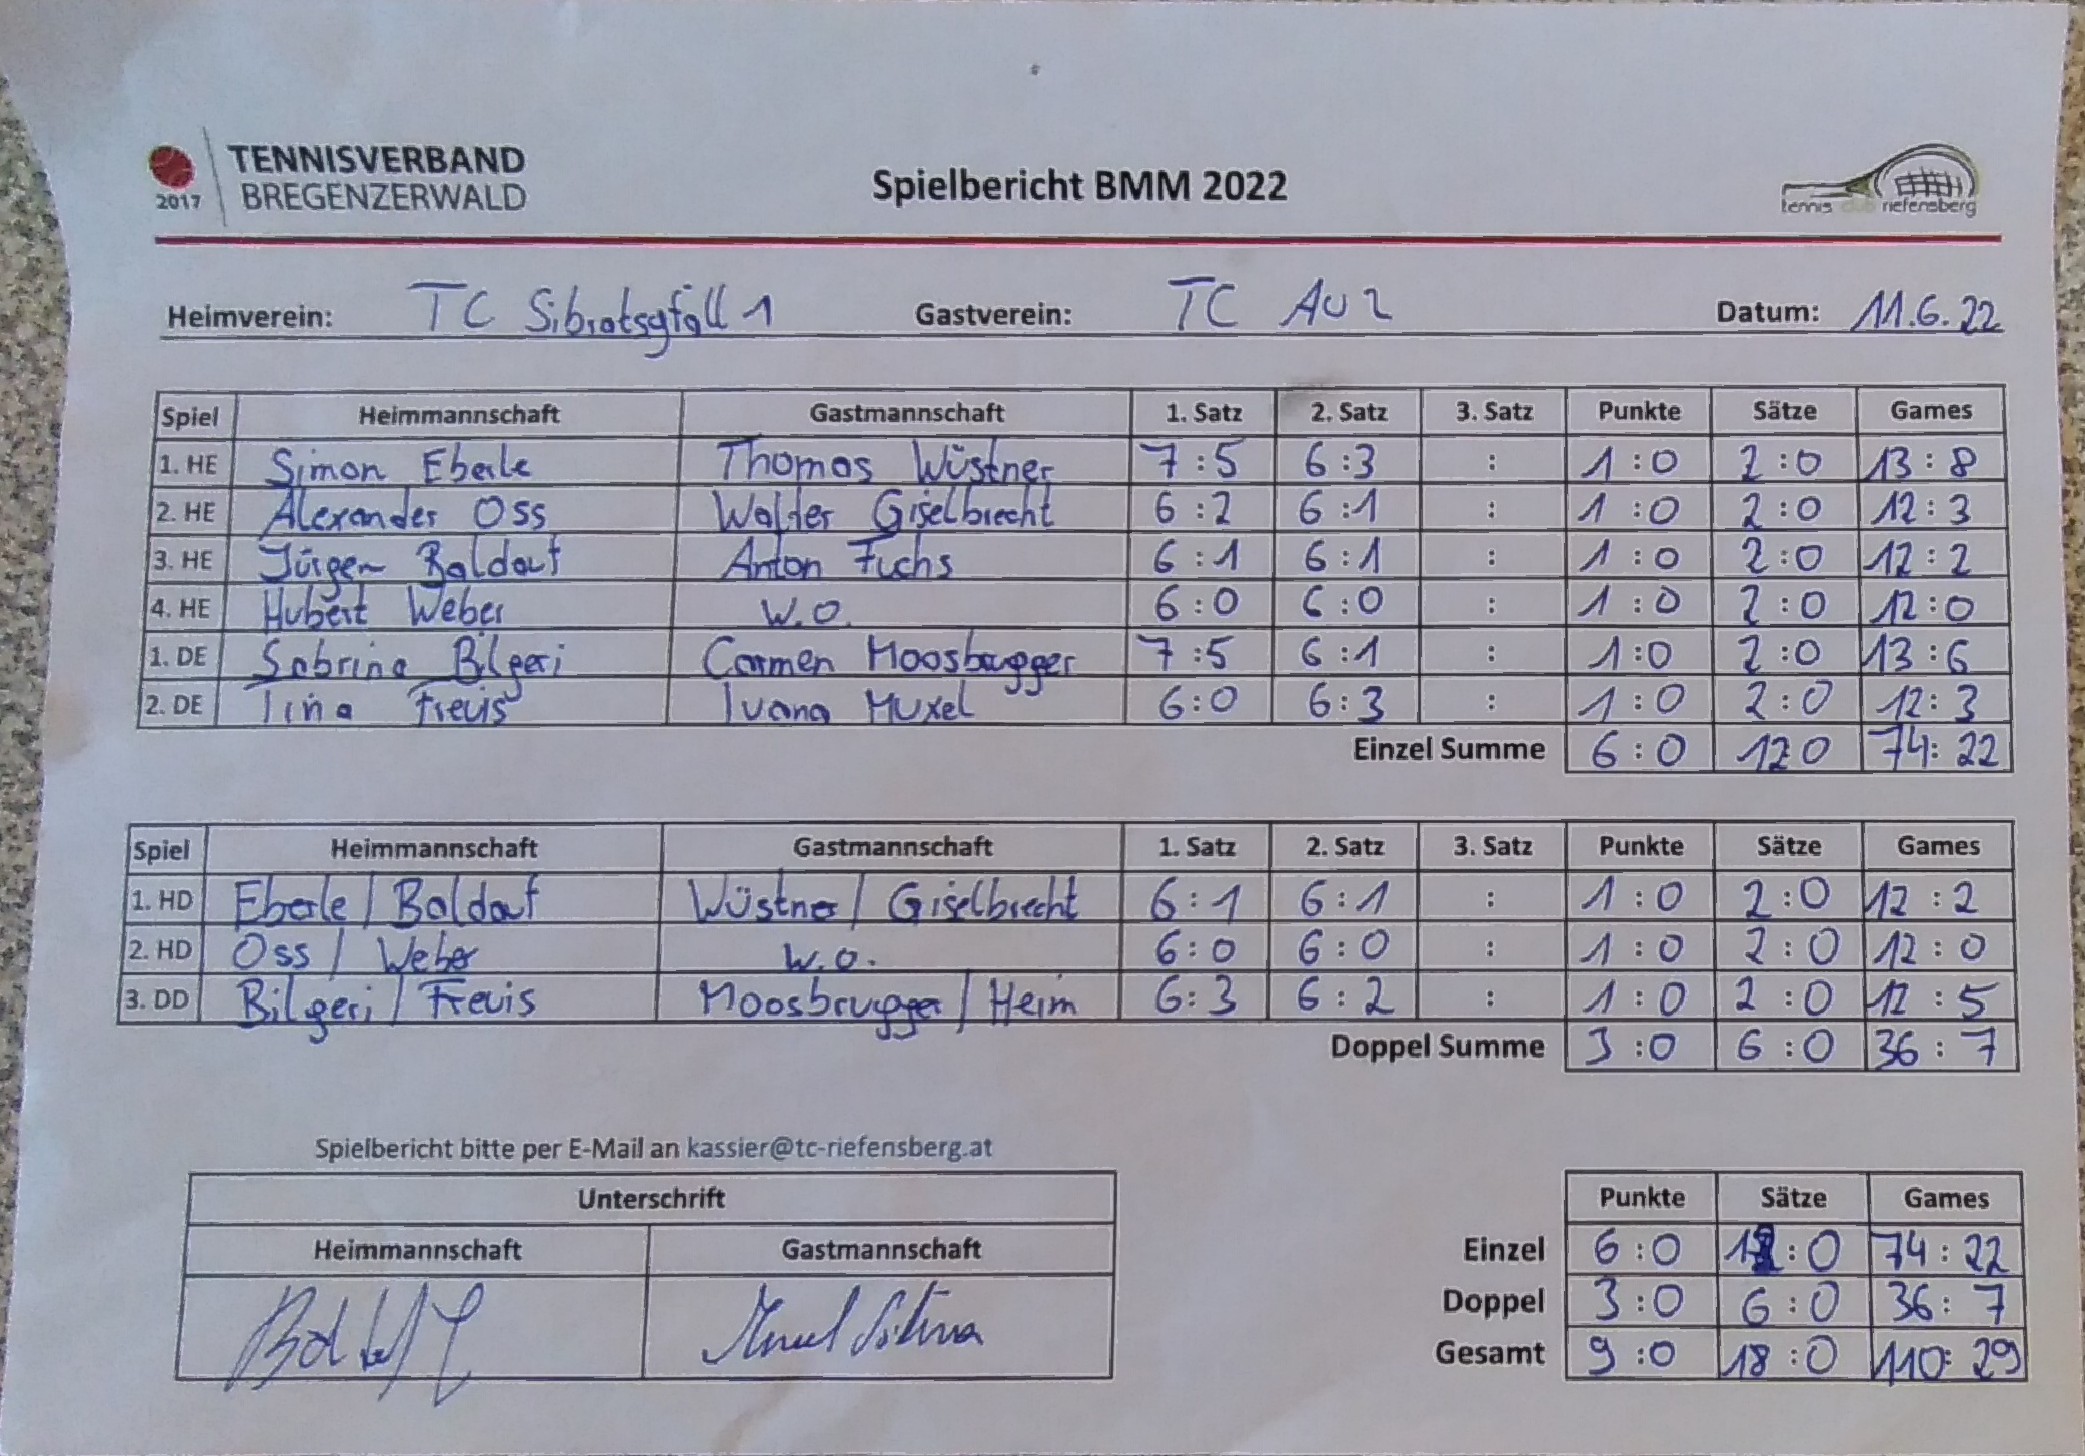 TENNISVERBAND
BREGENZERWALD
2017
Spielbericht BMM 2022
tennis club riefensberg
Heimverein: TC Sibratsgfäll 1 Gastverein: TC AU 2 Datum: 11.6.22
Spiel Heimmannschaft Gastmannschaft 1. Satz 2. Satz 3. Satz Punkte Sätze Games
1. HE Simon Eberle Thomas Wüstner 7:5 6:3 : 1:0 2:0 13:8
2. HE Alexander Oss Walter Giselbrecht 6:2 6:1 : 1:0 2:0 12:3
3. HE Jürgen Baldauf Anton Fuchs 6:1 6:1 : 1:0 2:0 12:2
4. HE Hubert Weber W.O. 6:0 6:0 : 1:0 2:0 12:0
1. DE Sabrina Bilgeri Carmen Moosbrugger 7:5 6:1 : 1:0 2:0 13:6
2. DE Tina Freuis Ivana Muxel 6:0 6:3 : 1:0 2:0 12:3
Einzel Summe 6:0 12:0 74:22
Spiel Heimmannschaft Gastmannschaft 1. Satz 2. Satz 3. Satz Punkte Sätze Games
1. HD Eberle / Baldauf Wüstner / Giselbrecht 6:1 6:1 : 1:0 2:0 12:2
2. HD Oss / Weber W.O. 6:0 6:0 : 1:0 2:0 12:0
3. DD Bilgeri / Freuis Moosbrugger / Heim 6:3 6:2 : 1:0 2:0 12:5
Doppel Summe 3:0 6:0 36:7
Spielbericht bitte per E-Mail an kassier@tc-riefensberg.at
Unterschrift
Heimmannschaft Gastmannschaft
Punkte Sätze Games
Einzel 6:0 12:0 74:22
Doppel 3:0 6:0 36:7
Gesamt 9:0 18:0 110:29